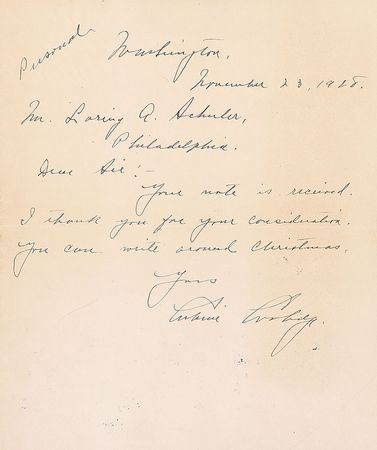 Personal
Washington,
November 23, 1928.
Mr. Loring A. Schuler,
Philadelphia.
Dear Sir:-
Your note is received.
I thank you for your consideration.
You can write around Christmas.
Yours
Calvin Coolidge.